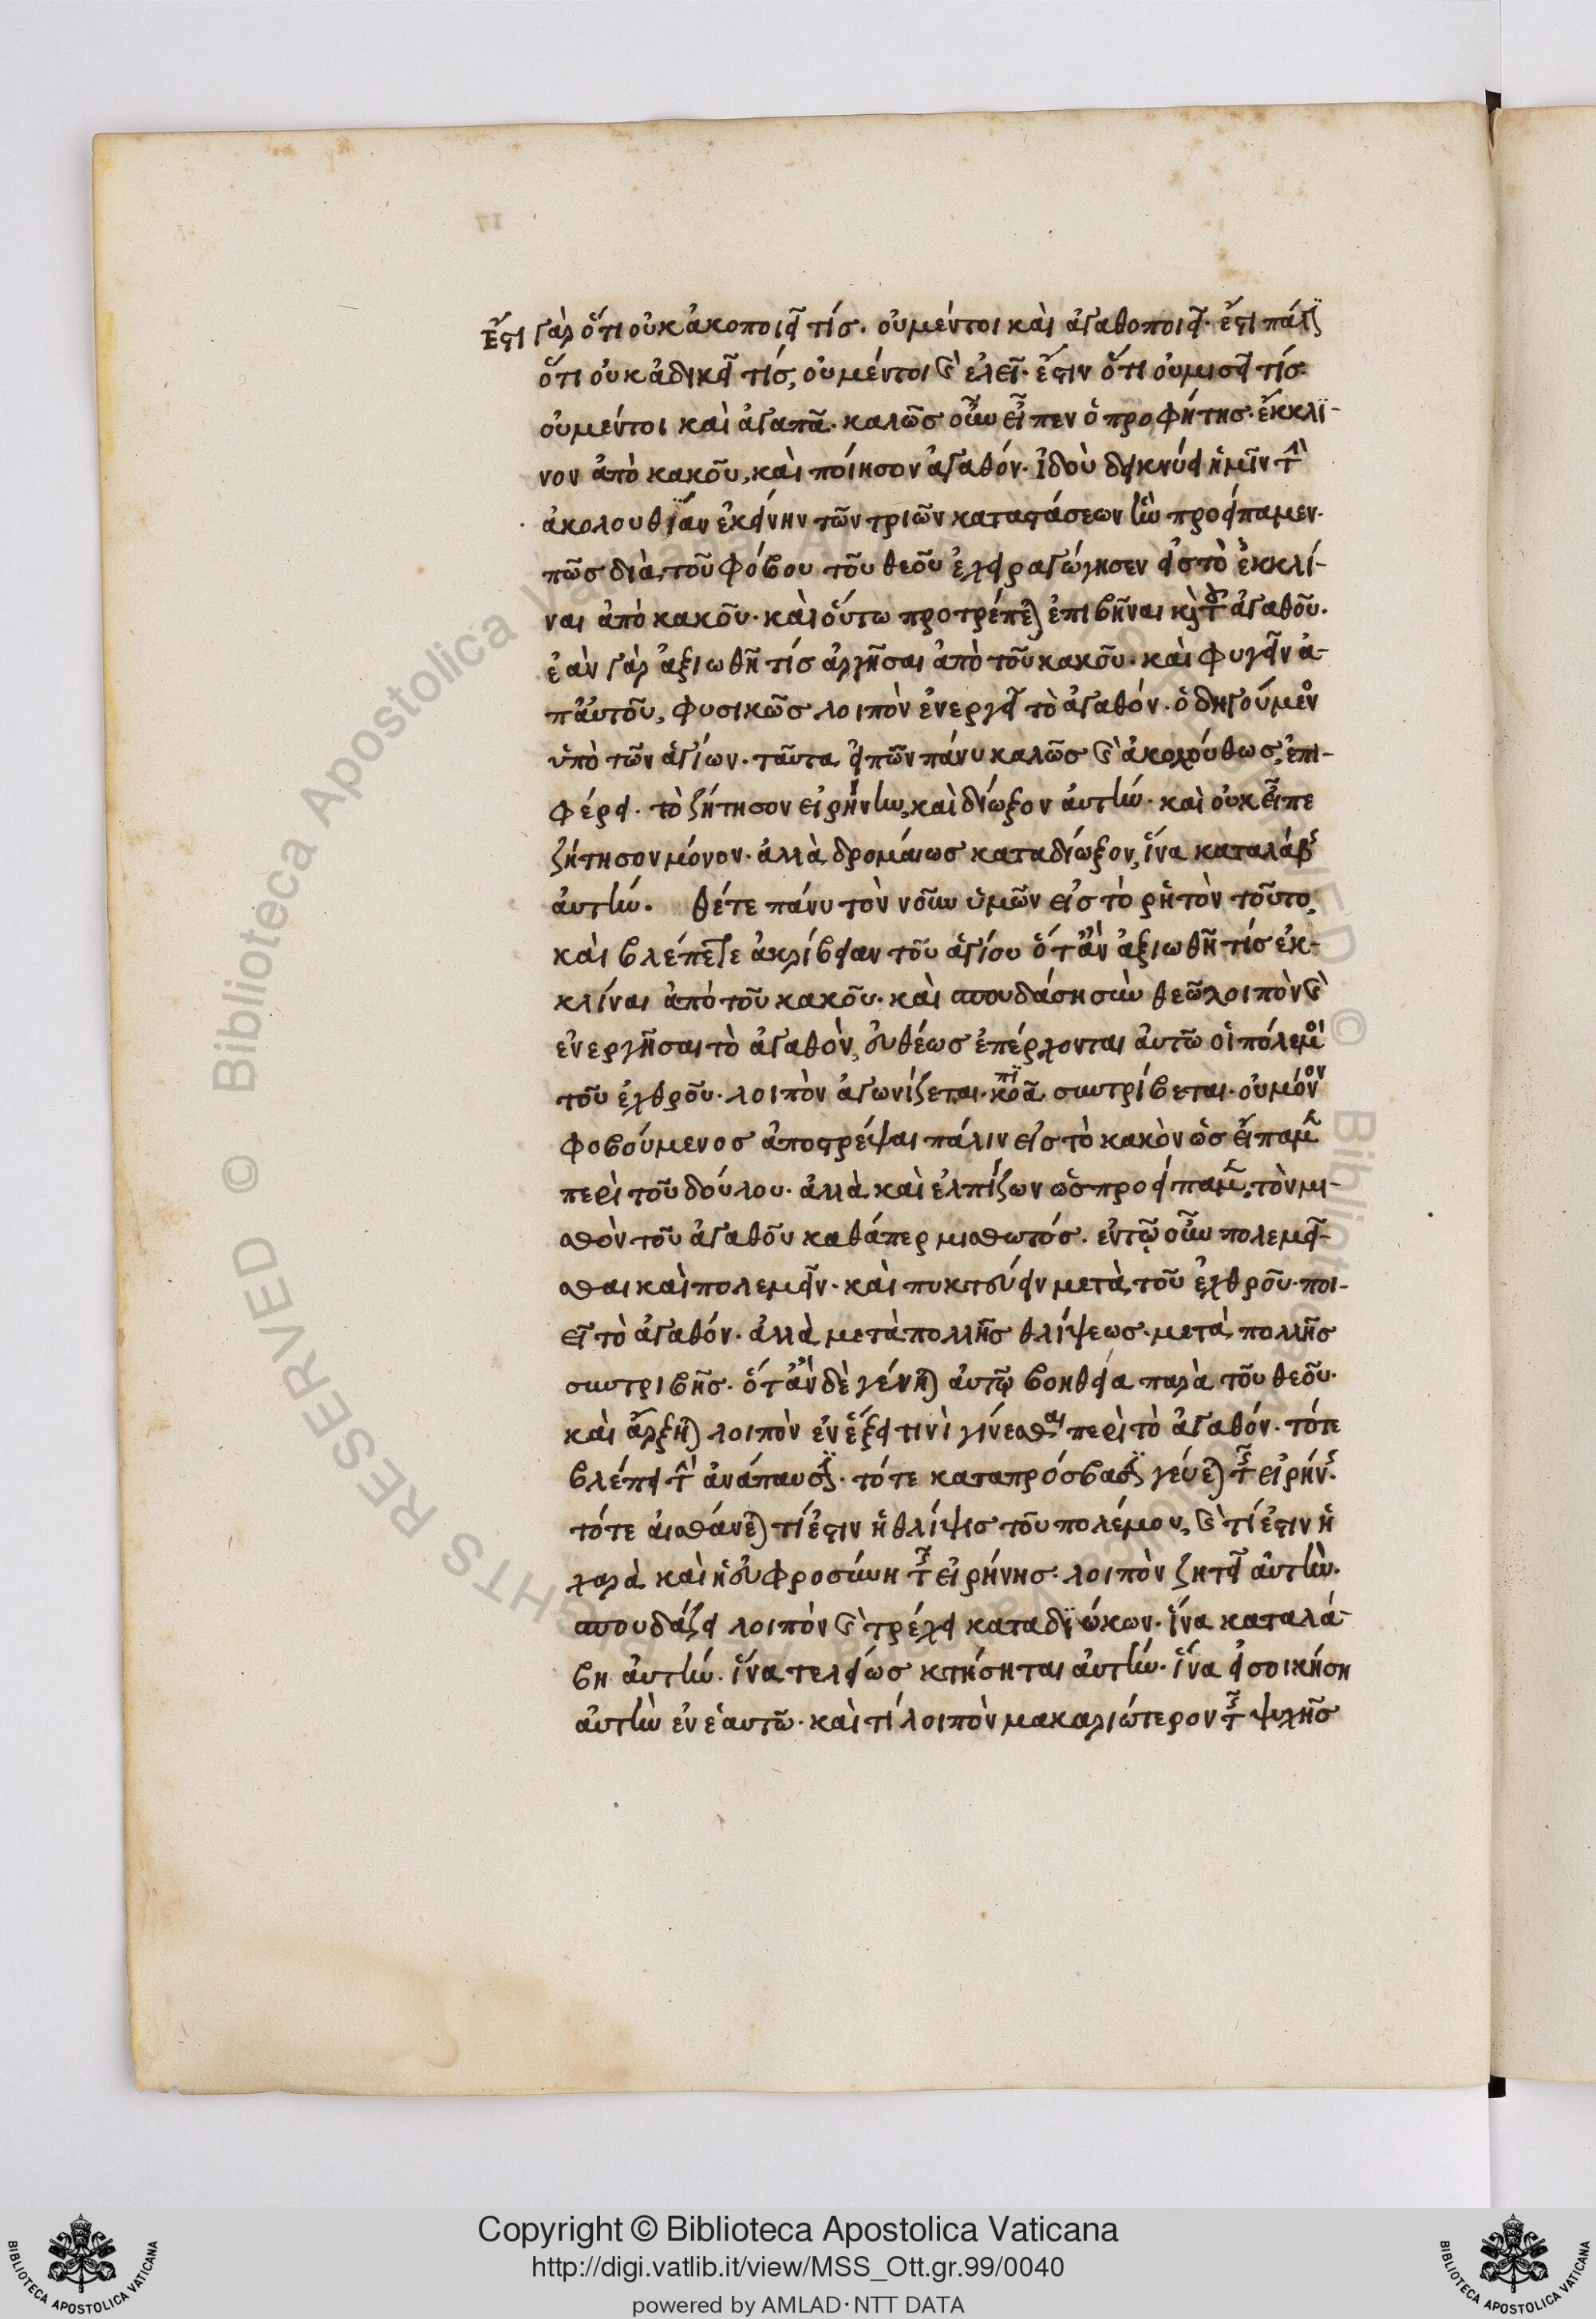 Ἔστι γὰρ ὅτι οὐ κακοποιεῖ τίς. οὐ μέντοι καὶ ἀγαθοποιεῖ. ἔστι πάλιν
ὅτι οὐκ ἀδικεῖ τίς, οὐ μέντοι καὶ ἐλεεῖ. ἔστιν ὅτι οὐ μισεῖ τίς
οὐ μέντοι καὶ ἀγαπᾶ. καλῶς οὖν εἶπεν ὁ προφήτης. ἔκκλϊ-
νον ἀπὸ κακοῦ, καὶ ποίησον ἀγαθόν. ἰδοὺ δεικνύει ἡμῖν τὴν
ἀκολουθΐαν ἐκείνην τῶν τριῶν καταστάσεων ἣν προείπαμεν.
πῶς διὰ τοῦ φόβου τοῦ θεοῦ ἐχειραγώγησεν εἰς τὸ ἐκκλί-
ναι ἀπὸ κακοῦ. καὶ οὕτω προτρέπεται ἐπιβῆναι καὶ τοῦ ἀγαθοῦ.
ἐὰν γὰρ ἀξιωθῆ τίς ἀργῆσαι ἀπὸ τοῦ κακοῦ. καὶ φυγεῖν ἀ-
π' αὐτοῦ, φυσικῶς λοιπὸν ἐνεργεῖ τὸ ἀγαθόν. ὁδηγούμενος
ὑπὸ τῶν ἁγίων. ταῦτα εἰπὼν πάνυ καλῶς καὶ ἀκολούθως, ἐπι-
φέρει. τὸ ζήτησον εἰρήνην, καὶ δίωξον αὐτήν. καὶ οὐκ εἶπε
ζήτησον μόνον. ἀλλὰ δρομαίως καταδίωξον, ἵνα καταλάβης
αὐτήν. θέτε πάνυ τὸν νοῦν ὑμῶν εἰς τὸ ῥητὸν τοῦτο,
καὶ βλέπετε ἀκρίβειαν τοῦ ἁγίου ὅτ' ἂν ἀξιωθῆ τίς ἐκ-
κλίναι ἀπὸ τοῦ κακοῦ. καὶ σπουδάση σὺν θεῶ λοιπὸν καὶ
ἐνεργῆσαι τὸ ἀγαθὸν, εὐθέως ἐπέρχονται αὐτῶ οἱ πόλεμοι
τοῦ ἐχθροῦ. λοιπὸν ἀγωνίζεται. κοπϊᾶ συντρίβεται. οὐ μόνον
φοβούμενος ἀποστρέψαι πάλιν εἰς τὸ κακὸν ὡς εἴπαμεν
περὶ τοῦ δούλου. ἀλλὰ καὶ ἐλπίζων ὡς προείπαμεν, τὸν μι-
σθὸν τοῦ ἀγαθοῦ καθάπερ μισθωτός. ἐν τῷ οὖν πολεμεῖ-
σθαι καὶ πολεμεῖν. καὶ πυκτεύειν μετὰ τοῦ ἐχθροῦ. ποι-
εῖ τὸ ἀγαθόν. ἀλλὰ μετὰ πολλῆς θλίψεως. μετὰ πολλῆς
συντριβῆς. ὅτ' ἂν δὲ γένηται αὐτῷ βοήθεια παρὰ τοῦ θεοῦ.
καὶ ἄρξηται λοιπὸν ἐν ἕξει τινὶ γίνεσθαι περὶ τὸ ἀγαθόν. τότε
βλέπει τὴν ἀνάπαυσϊν. τότε καταπρόσβασϊν γεύεται τῆς εἰρήνης.
τότε αἰσθάνεται τί ἐστιν ἡ θλίψις τοῦ πολέμου, καὶ τί ἐστιν ἡ
χαρὰ καὶ ἡ εὐφροσύνη τῆς εἰρήνης. λοιπὸν ζητεῖ αὐτὴν.
σπουδάζει λοιπὸν καὶ τρέχει καταδϊώκων. ἵνα καταλά-
βη αὐτήν. ἵνα τελείως κτήσηται αὐτήν. ἵνα εἰσοικήση
αὐτὴν ἐν ἑαυτῶ. καὶ τί λοιπὸν μακαριώτερον τῆς ψυχῆς
Copyright © Biblioteca Apostolica Vaticana
http://digi.vatlib.it/view/MSS_Ott.gr.99/0040
powered by AMLAD·NTT DATA